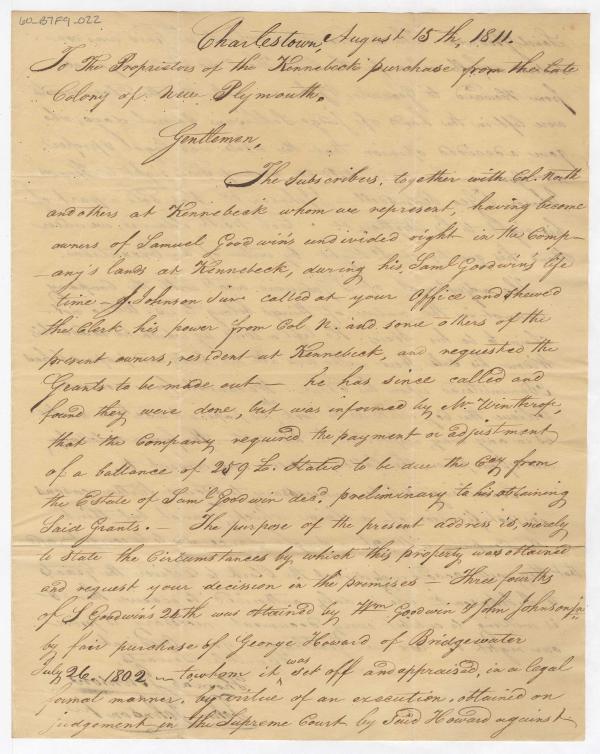 60_B7F9_022
Charlestown, August 15th, 1811.
To The Proprietors of the Kennebeck purchase from the late
Colony of New Plymouth.
Gentlemen,
The Subscribers, together with Col. North
and others at Kennebeck whom we represent, having become
owners of Samuel Goodwin's undivided right in the Comp-
-any's lands at Kennebeck, during his, Saml Goodwin's life
time - J. Johnson Jur called at your Office and shewed
the Clerk his power from Col N. and some others of the
present owners, resident at Kennebeck, and requested the
Grants to be made out — he has since called and
found they were done, but was informed by Mr Winthrop,
that the Company required the payment or adjustment
of a ballance of 259 £. Stated to be due the Coy from
the Estate of Saml Goodwin decd. preliminary to his obtaining
Said Grants. — The purpose of the present address is, merely
to state the Circumstances by which this property was obtained
and request your decission in the premises — Three fourths
of S Goodwin's 24th was obtained by Wm Goodwin & John Johnson jur
by fair purchase of George Howard of Bridgewater
July 26. 1802 — to whom it was set off and appraised, in a legal
formal manner, by virtue of an execution, obtained on
judgement in the Supreme Court by Said Howard against